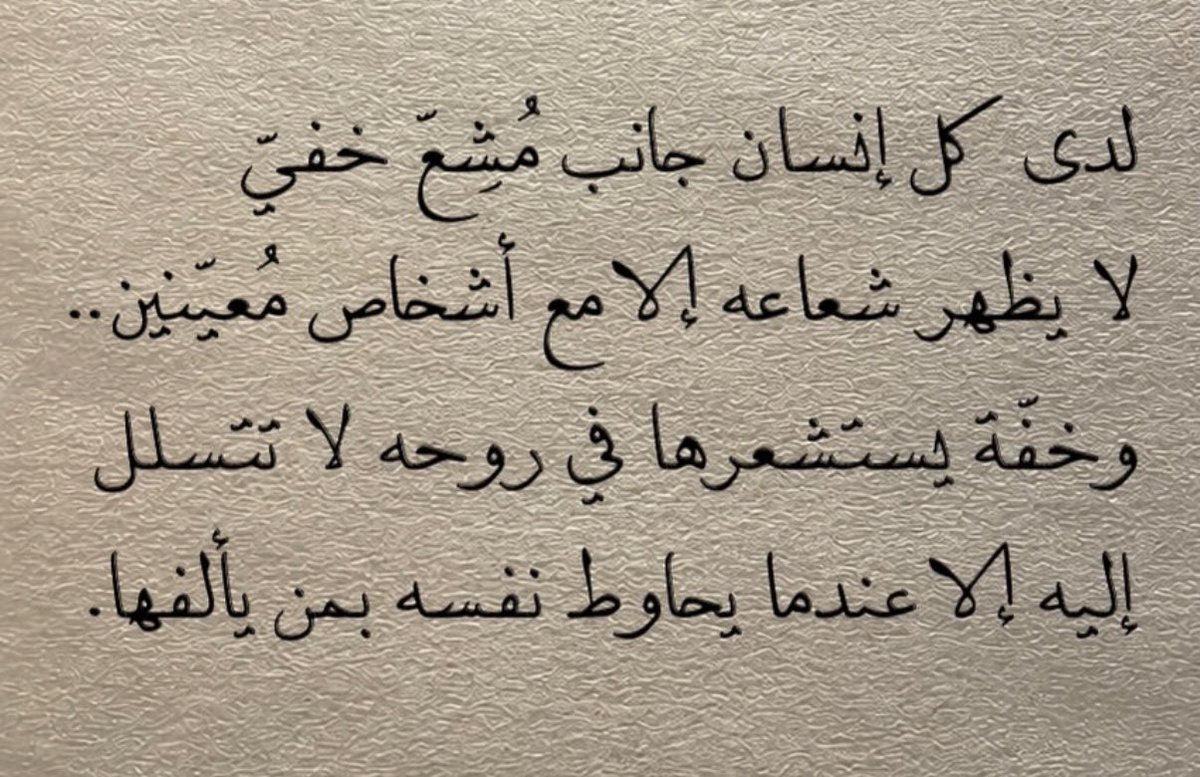 لدى كل إنسان جانب مُشِعّ خفيّ
لا يظهر شعاعه إلا مع أشخاص مُعيّنين..
وخفّة يستشعرها في روحه لا تتسلل
إليه إلا عندما يحاوط نفسه بمن يألفها.